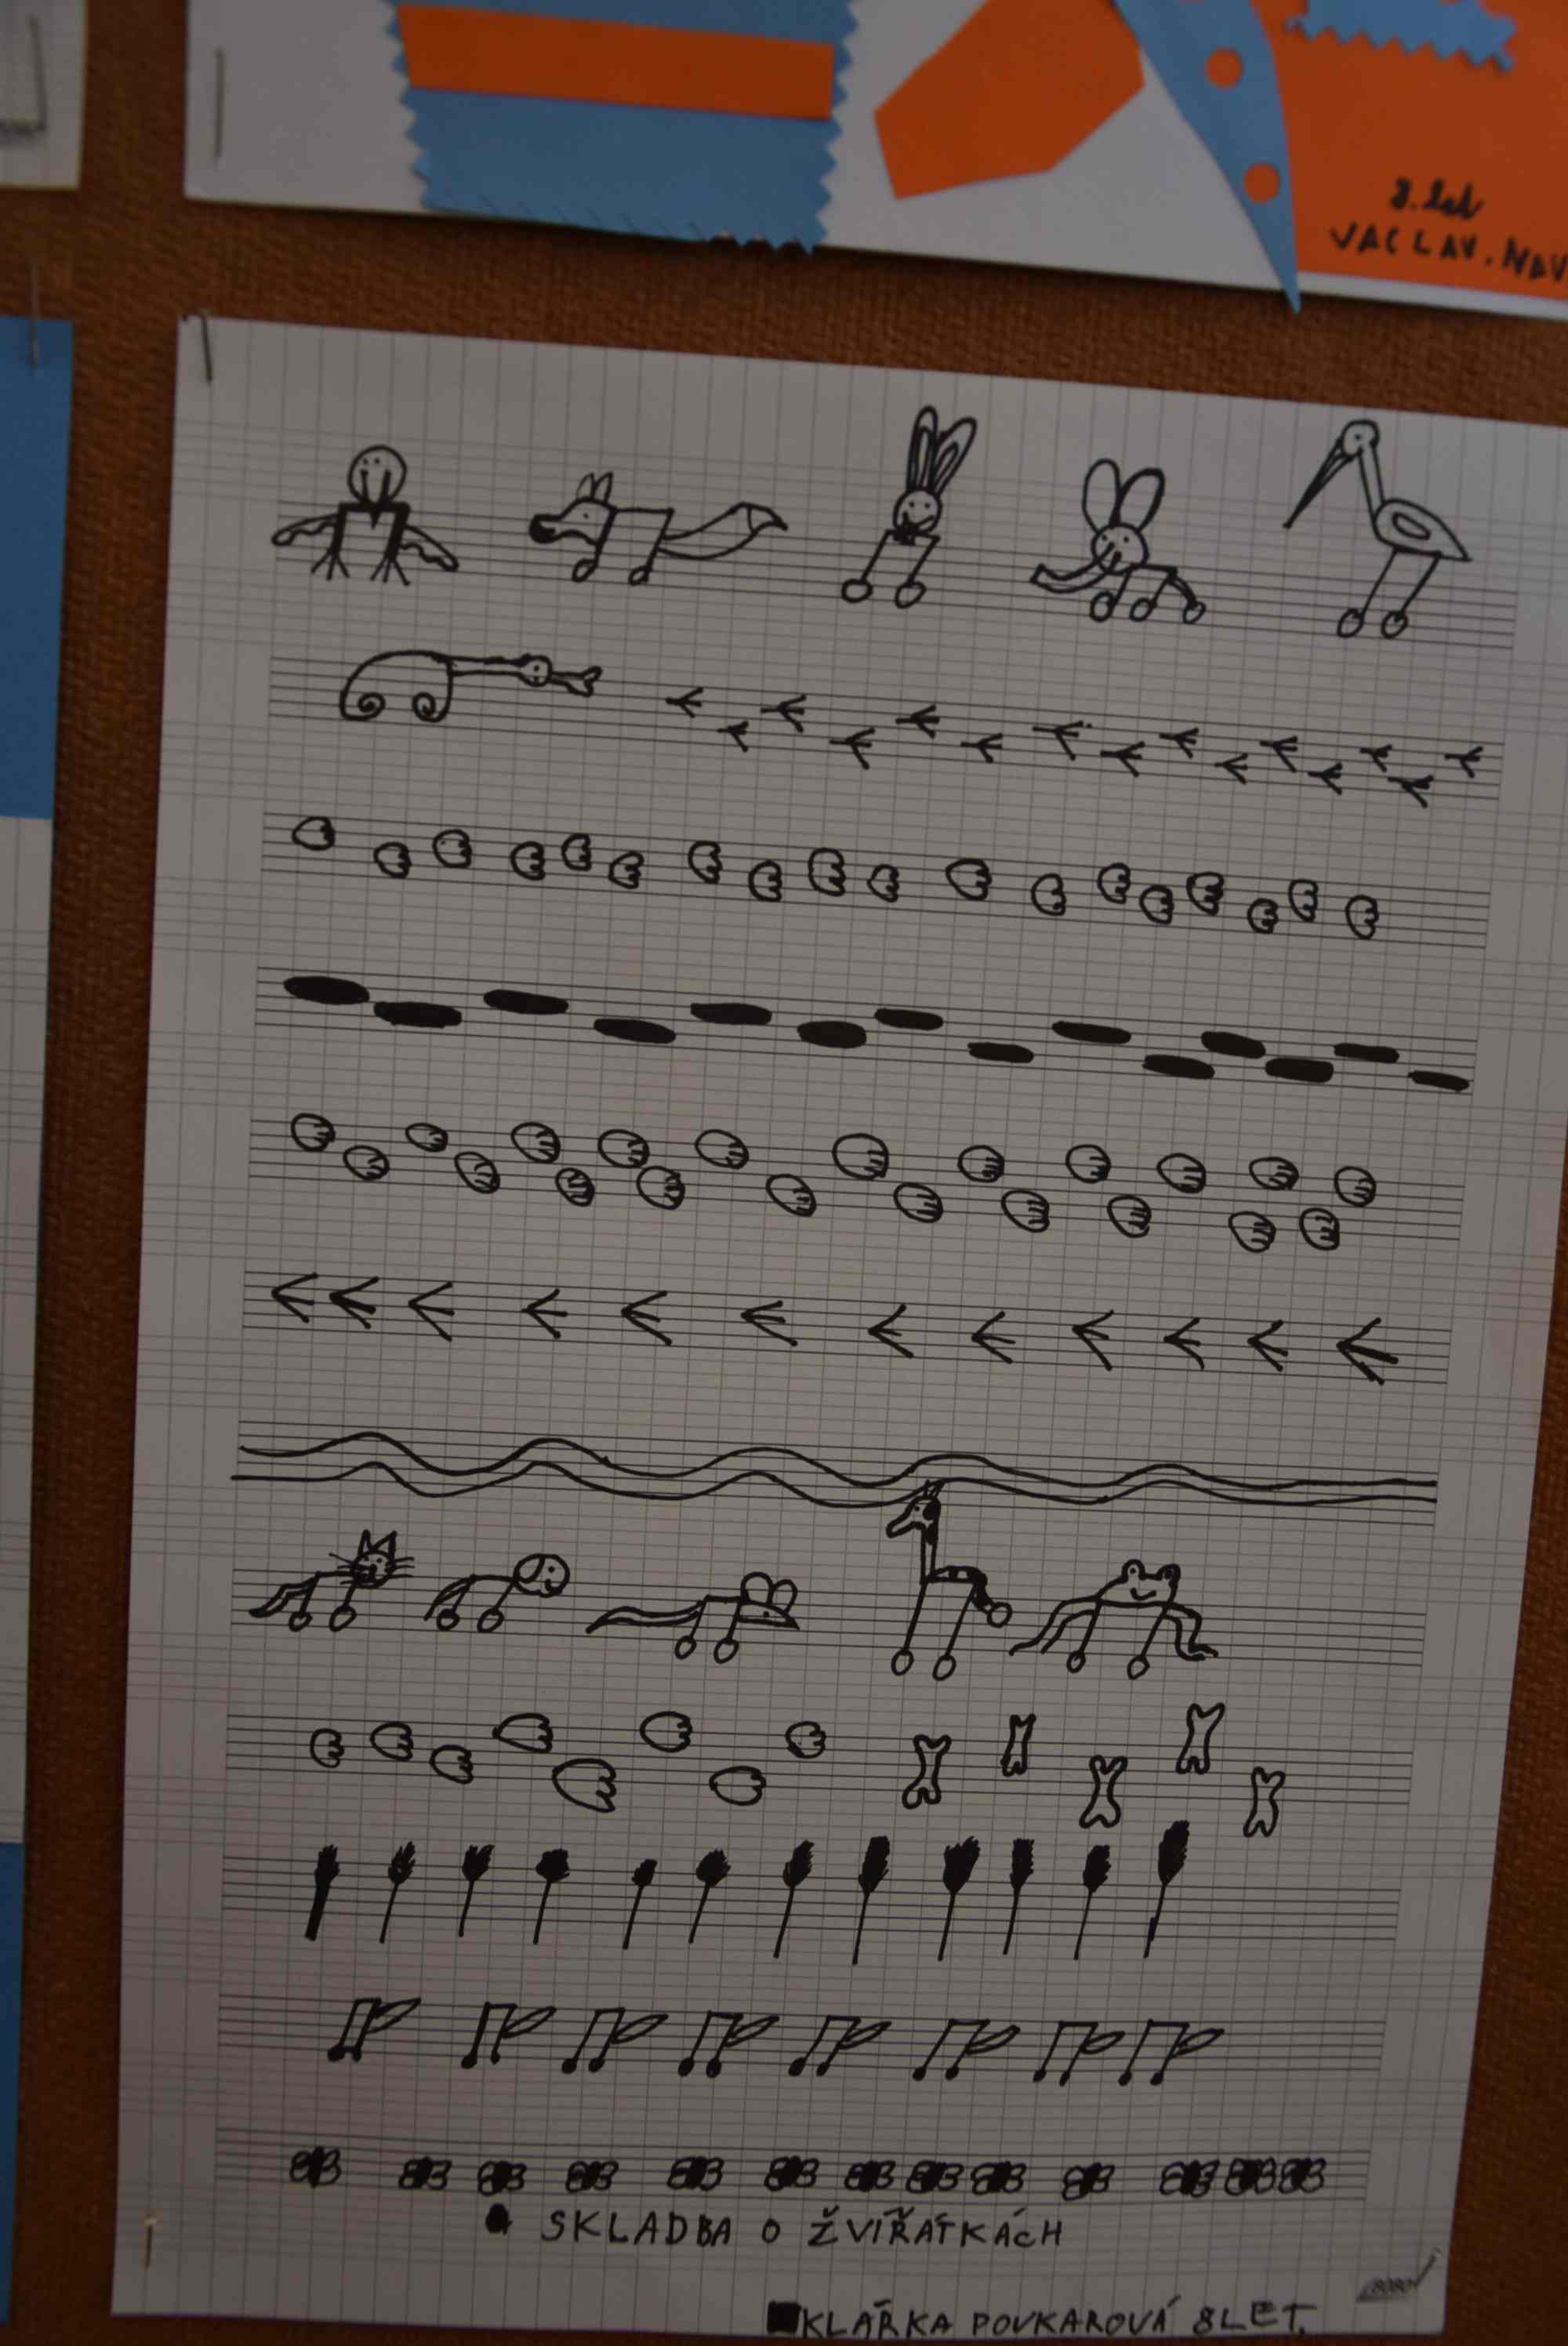 8. let
VACLAV. NAV
SKLADBA O ŽVIŘÁTKÁCH
KLÁRKA POVKAROVÁ 8 LET.